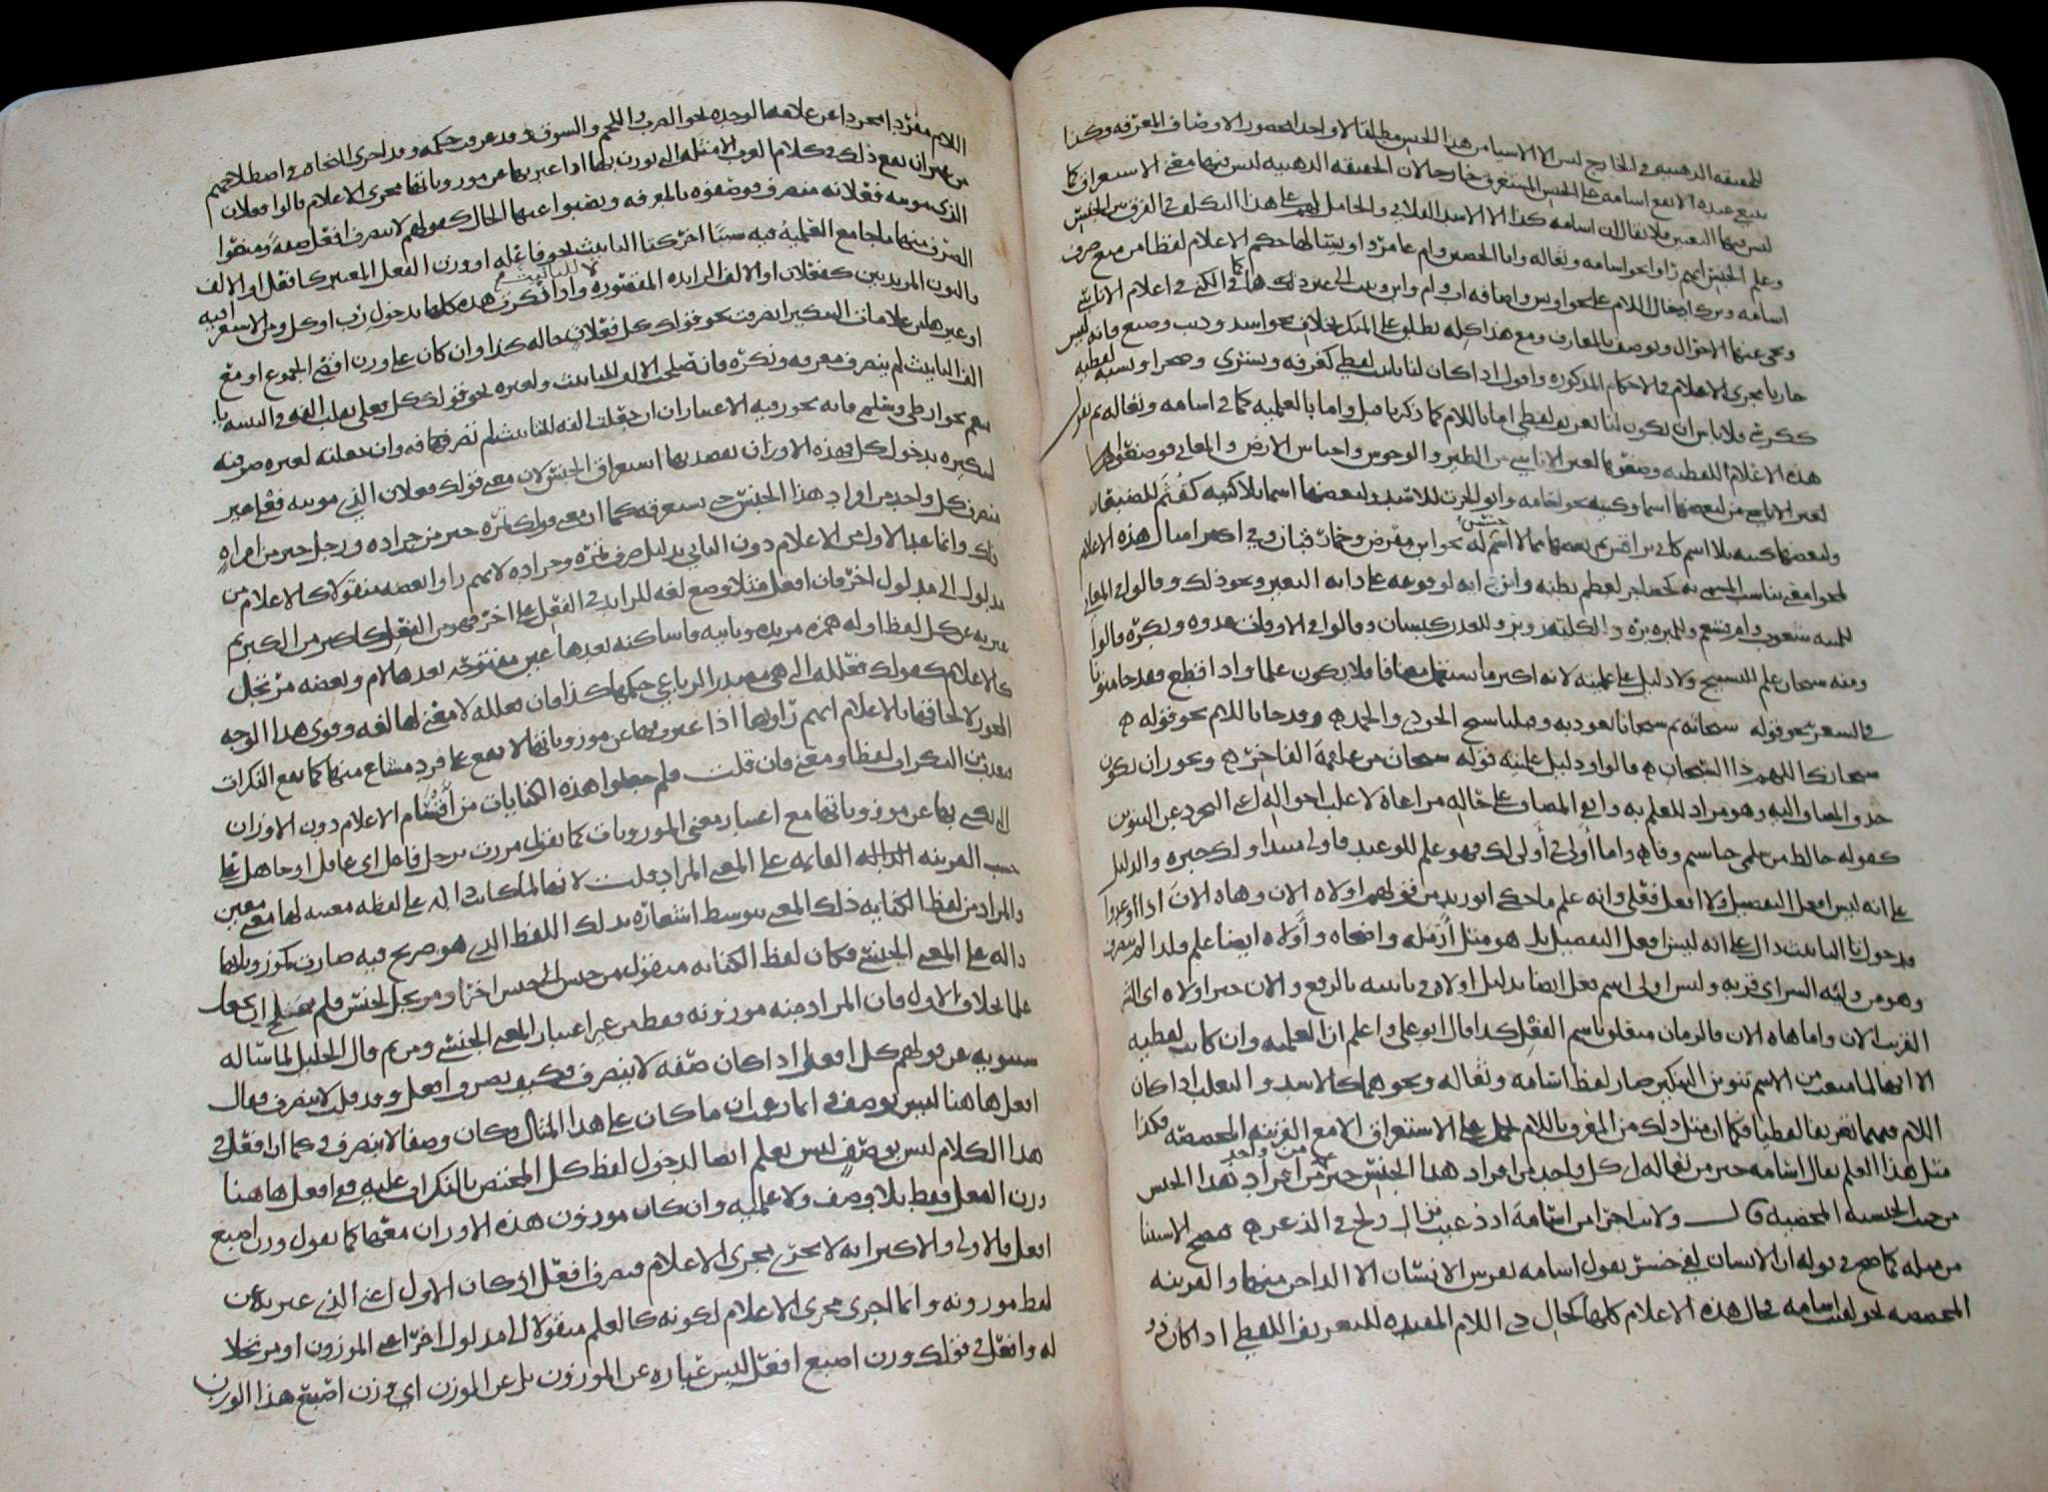 للحقيقة الذهنية والخارج ليس الا الاسما من هذا الجنس مطلقا لا واحدا محصور الاوصاف المعرفه
اسامه على الجنس المستغرق خارجا لان الحقيقه الذهنيه ليس فيها معنى الاستغراق كما
ليس فيها التعين فلا يقال ان اسامه كذا الا الاسد الفلاني والحامل لهم على هذا التكلف في الفرق بين الجنس
وعلم الجنس انهم راوا نحو اسامه وثعاله وابا الحصين وام عامر واويسا لها حكم الاعلام لفظا من منع صرف
اسامه وترك ادخال اللام على نحو اويس واضافه اب وام وابن وبنت الى غير ذلك كما في الكنى في اعلام الاناسي
وتجي عنها الاحوال وتوصف بالمعارف ومع هذا كله يطلق على المنكر بخلاف نحو اسد وذيب وضبع فانه ليس
جاريا مجرى الاعلام في الاحكام المذكوره واقول اذا كان لنا تانيث لفظي كغرفه وبشرى وصحرا ونسبه لفظيه
ككرسي فلا باس ان يكون لنا تعريف لفظي اما باللام كما ذكرنا قبل واما بالعلميه كما في اسامه وثعاله ثم نقول
هذه الاعلام اللفظيه وضعوها لغير الاناسي من الطير والوحوش واحناش الارض والمعاني فوضعوا لها
لغير الاناسي من بعضها اسما وكنيه نحو اسامه وابو الحرث للاسد ولبعضها اسما بلا كنيه كقثم للضبعان
ولبعضها كنيه بلا اسم كابي براقش ثم بعضها مما لا اسم جنس له نحو ابن مقرض وحمار قبان وفي اكثر امثال هذه الاعلام
لمحوا معنى يناسب المسمى به كحضاجر لعظم بطنه وابن دايه لوقوعه على دايه البعير ونحو ذلك وقالوا في المعاني
للمنيه شعوب وام قشعم وللمبره بره وللكليه زوبر وللغدر كيسان وقالوا في الاوقات غدوه وبكره قالوا
ومنه سبحان علم للتسبيح ولا دليل على علميته لانه اكثر ما يستعمل مضافا فلا يكون علما واذا قطع فقد جا منونا
في الشعر نحو قوله سبحانه ثم سبحانا نعوذ به وقبلنا سبح الجودي والجمد ه وقد جا باللام نحو قوله ه
سبحانك اللهم ذا السبحان ه قالوا ودليل علميته قوله سبحان من علقمة الفاخر ه ويجوز ان يكون
حذف المضاف اليه وهو مراد للعلم به وابقى المضاف على حاله مراعاة لاغلب احواله اي التجرد عن التنوين
كقوله خالط من سلمى خياشيم وفا ه واما اولى في اولى لك فهو علم للوعيد فاولى مبتدا ولك خبره والدليل
على انه ليس افعل التفضيل ولا افعل فعلى وانه علم ما حكى ابو زيد من قولهم اولاة الان وهاه الان اذا اوعدوا
فدخول تا التانيث دال على انه ليس افعل التفضيل بل هو مثل ارمل وارمله واضحاه واولاه ايضا علم ولذا لم ينصرف
وهو من وليه الشر اي قربه وليس اولى اسم فعل ايضا بدليل اولاه في تانيثه بالرفع والان خبر اولاه اي الشر
القريب الان واما هاه الان فالزمان متعلق باسم الفعل كذا قال ابو علي واعلم ان العلميه وان كانت لفظيه
الا انها لما منعت من الاسم تنوين التنكير صار لفظ اسامه وثعاله ونحوهما كالاسد والثعلب اذا كان
اللام فيهما تعريفا لفظيا فكما ان مثل ذلك من المعرف باللام يحمل على الاستغراق الا مع القرينه المخصصه فكذا
مثل هذا العلم يقال اسامه خير من ثعاله اي كل واحد من افراد هذا الجنس خير من كل واحد من افراد هذا الجنس
من حيث الجنسيه المحضيه قال ولانت اجرا من اسامة اذ دعيت نزال ولج في الذعر ه فيصح الاستثنا
من مثله كما صح في قوله ان الانسان لفي خسر تقول اسامه يفرس الانسان الا الداجن منها والقرينه
المخصصه نحو لقيت اسامه فحال هذه الاعلام كلها كحال ذي اللام المفيده للتعريف اللفظي اذا كان ذو
اللام مفردا مجردا عن علامه الوحده نحو الضرب واللحم والسوق وقد عرفت حكمه وقد اجرى النحاه في اصطلاحهم
من غير ان يقع ذلك في كلام العرب الامثله التي يوزن بها اذا عبر بها عن موزوناتها مجرى الاعلام قالوا فعلان
الذي مونثه فعلانه منصرف فوصفوه بالمعرفه ونصبوا عنها الحال كقولهم لا ينصرف افعل صفة ومنعوا
الصرف منها ما جامع العلميه فيه سببا اخر كتا التانيث نحو فاعله او وزن الفعل المعتبر كافعل او الالف
والنون المزيدتين كفعلان او الالف الزايده المقصوره لا للتانيث واذا نكرت هذه كلها بدخول رب او كل ومن الاستغراقيه
او غير هن من علامات التنكير انصرفت نحو قولك كل فعلان حاله كذا وان كان على وزن اقصى الجموع او مع
الف التانيث لم ينصرف معرفه ونكره فان صلحت الالف للتانيث ولغيره نحو قولك كل فعلى تقلب الفه في التثنيه يا
نعم نحو ارطى وسلمى فانه يجوز فيه الاعتباران ان جعلت الفه للتانيث لم تصرفها وان جعلته لغيره صرفته
لتنكيره بدخول كل فهذه الاوزان يقصد بها استغراق الجنس لان معنى قولك فعلان الذي مونثه فعلى غير
منصرف كل واحد من افراد هذا الجنس حتى يستغرقه كما ان معنى قولك تمره خير من جراده ورجل خير من امراه
ذلك وانما عد الاول من الاعلام دون الثاني بدليل صرف تمره وجراده لانهم راوا بعضه منقولا كالاعلام من
مدلول الى مدلول اخر فان افعل مثلا وضع لغه للزايد في الفعل على اخر فهو من الفعل كاكبر من الكبر ثم
عبر به عن كل لفظ اوله همزه مزيده وثانيه فا ساكنه بعدها عين مفتوحه بعدها لام وبعضه مرتجل
كالاعلام كقولك فعلله التي هي مصدر الرباعي حكمها كذا فان فعلله لا معنى لها لغه وقوى هذا الوجه
المجوز لالحاقها بالاعلام انهم راوها اذا عبروا بها عن موزوناتها لا تقع على فرد مشاع منها كما تقع النكرات
فعدت من النكرات لفظا ومعنى فان قلت فلم جعلوا هذه الكنايات من اقسام الاعلام دون الاوزان
التي يكنى بها عن موزوناتها مع اعتبار معنى الموزونات كما تقول مررت برجل فاعل اي عاقل او جاهل على
حسب القرينه الداله القايمه على المعنى المراد قلت لانها لما كانت داله على لفظه معينه لها معنى معين
والمراد من لفظ الكنايه ذلك المعنى بتوسط اشعاره بذلك اللفظ الذي هو صريح فيه صارت كموزوناتها
داله على المعنى الجنسي فكان لفظ الكنايه منقول من جنس الى جنس اخر او مرتجل لجنس فلم يصلح ان يجعل
علما بخلاف الاول فان المراد منه موزونه فقط من غير اعتبار المعنى الجنسي ومن ثم قال الخليل لما ساله
سيبويه عن قولهم كل افعل اذا كان صفه لا ينصرف فكيف يصرف افعل وقد قلت لا ينصرف فقال
افعل هاهنا ليس بوصف انما زعمت ان ما كان على هذا المثال وكان وصفا لا ينصرف كما ان افعل في
هذا الكلام ليس بوصف ليس بعلم ايضا لدخول لفظ كل المختص بالنكرات عليه ففي افعل هاهنا
وزن الفعل فقط بلا وصف ولا علميه وان كان موزون هذه الاوزان معها كما تقول وزن اصبع
افعل فالاولى والاكثر انه لا يجري مجرى الاعلام فيصرف افعل اذ كان الاول اعني الذي عبر به عن
لفظ موزونه وانما اجري مجرى الاعلام لكونه كالعلم منقولا الى مدلول اخر اعني الموزون او مرتجلا
له وافعل في قولك وزن اصبع افعل ليس عباره عن الموزون بل عن الوزن اي وزن اصبع هذا الوزن